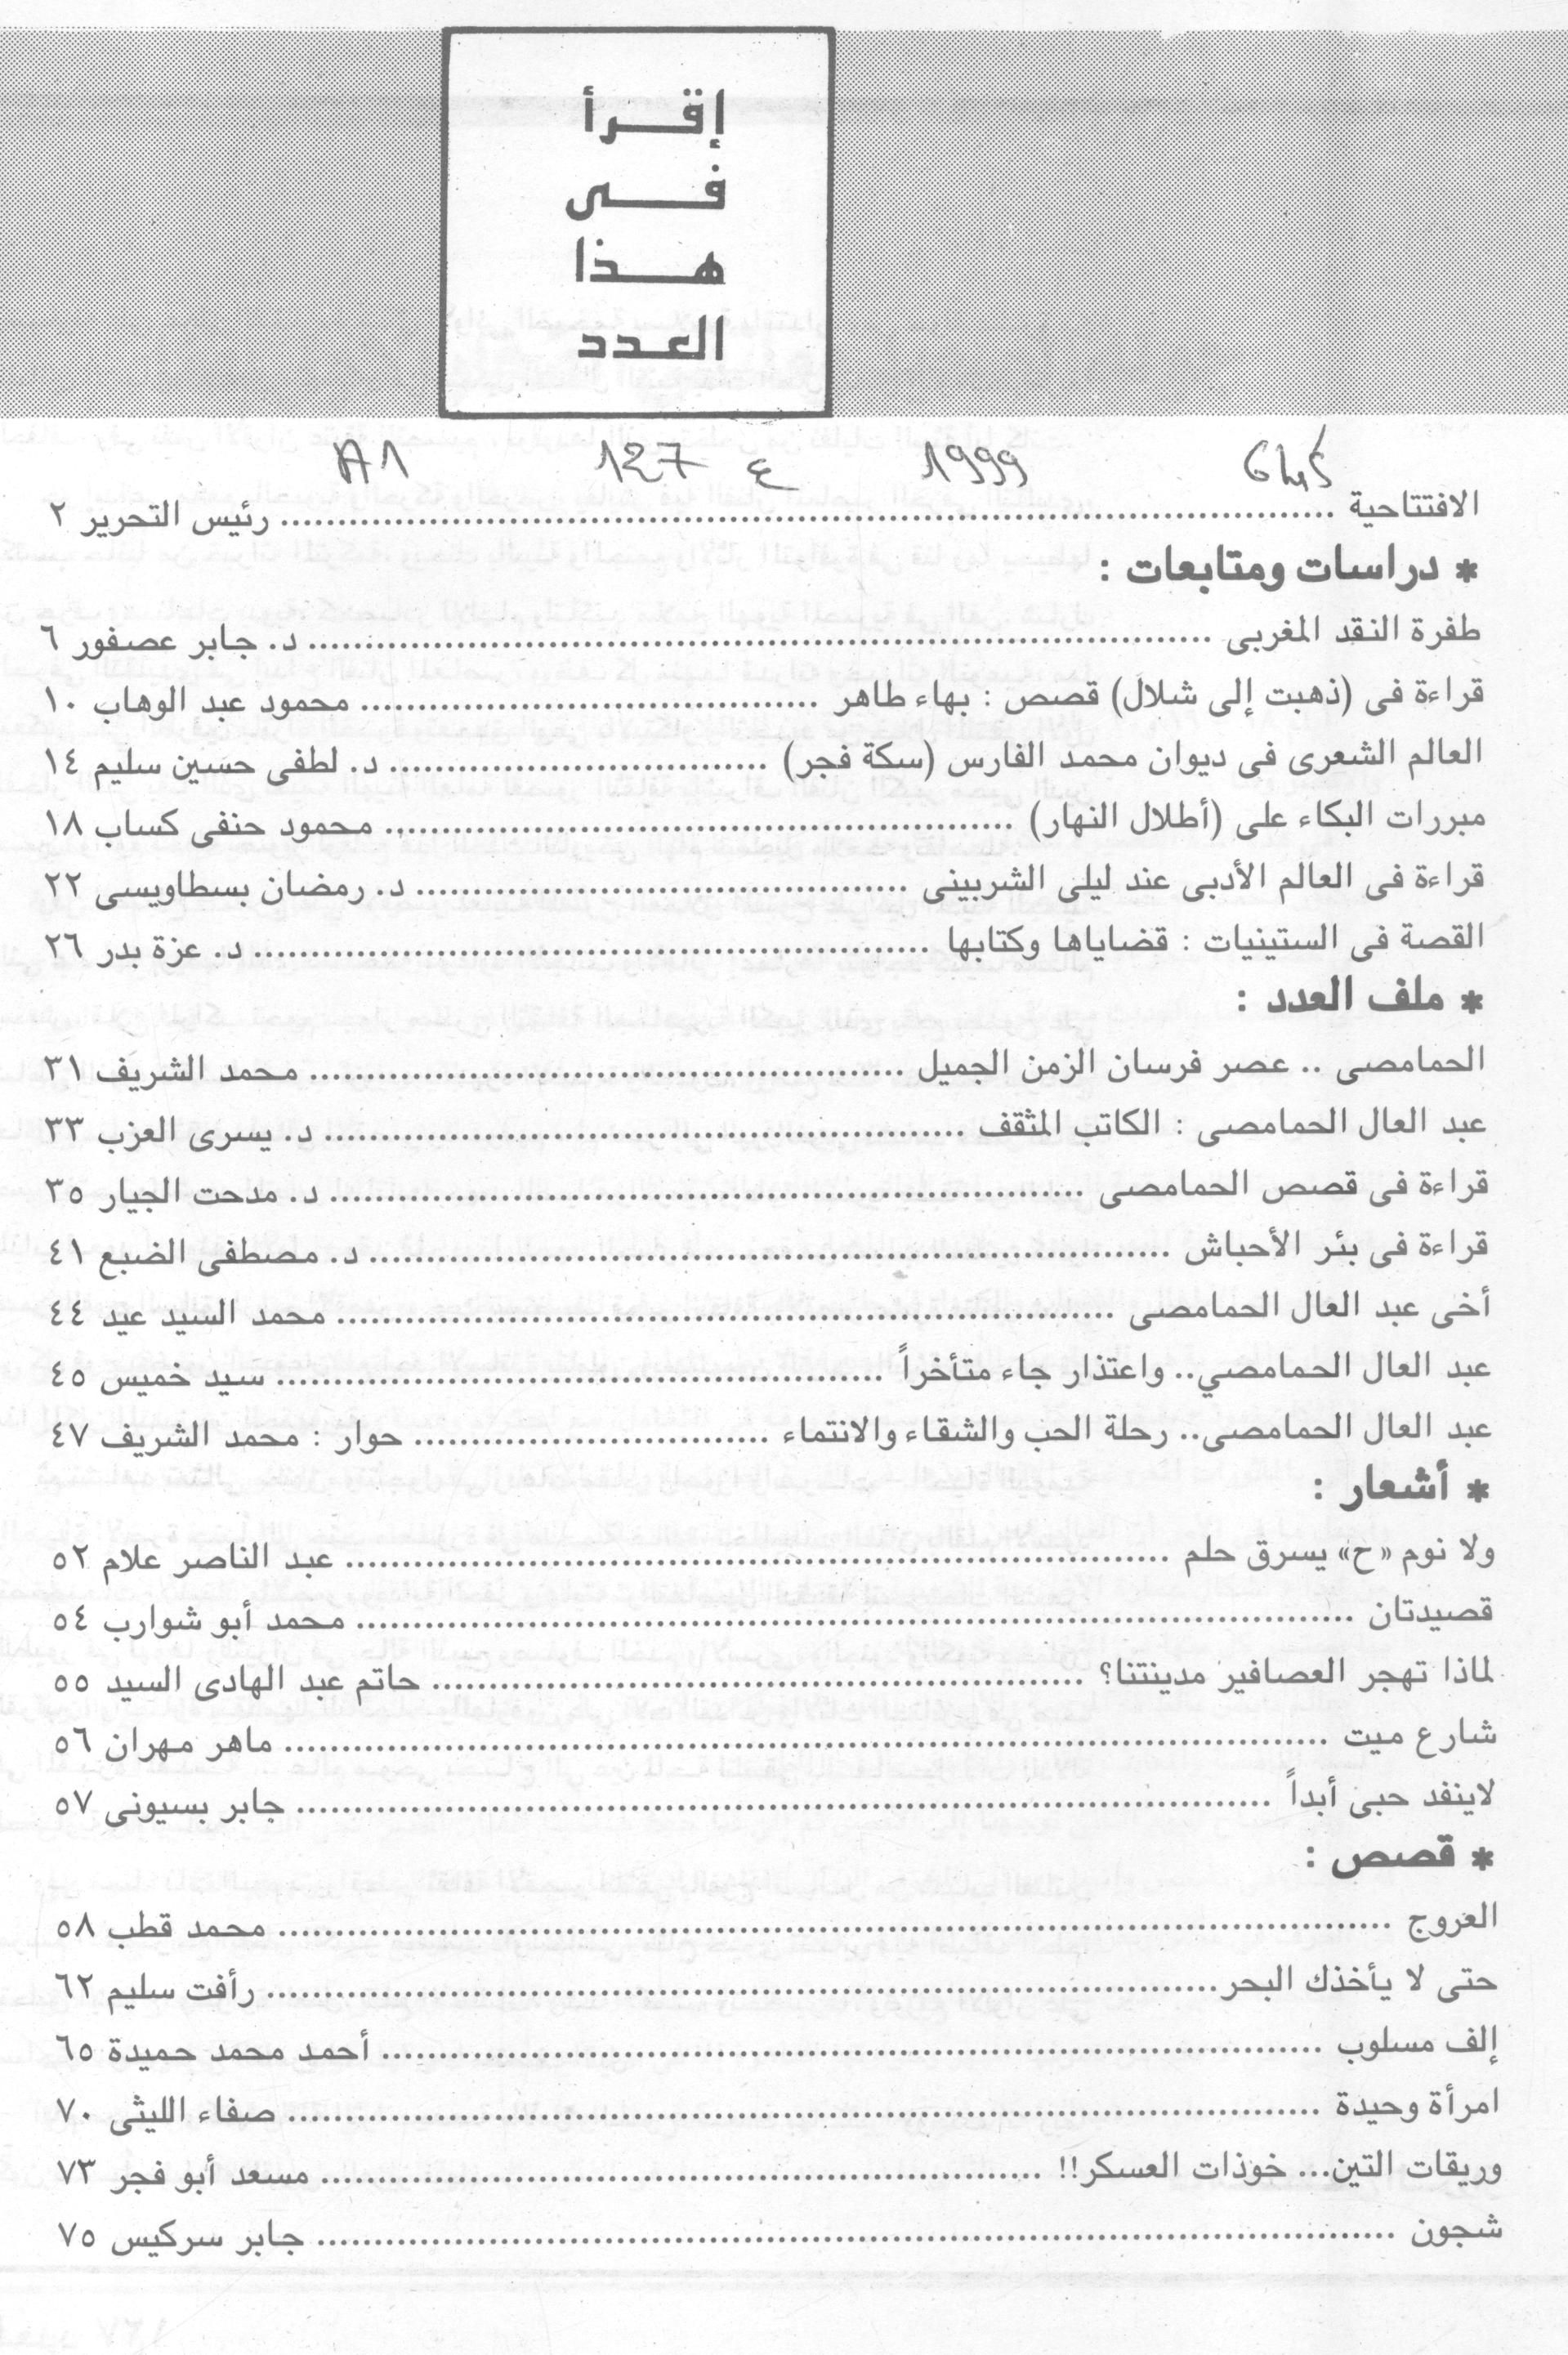 إقرأ
فى
هذا
العدد
1999 ع 127 A1
الافتتاحية ........ رئيس التحرير ٢
* دراسات ومتابعات :
طفرة النقد المغربى ........ د. جابر عصفور ٦
قراءة فى (ذهبت إلى شلال) قصص : بهاء طاهر ........ محمود عبد الوهاب ١٠
العالم الشعرى فى ديوان محمد الفارس (سكة فجر) ........ د. لطفى حسين سليم ١٤
مبررات البكاء على (أطلال النهار) ........ محمود حنفى كساب ١٨
قراءة فى العالم الأدبى عند ليلى الشربينى ........ د. رمضان بسطاويسى ٢٢
القصة فى الستينيات : قضاياها وكتابها ........ د. عزة بدر ٢٦
* ملف العدد :
الحمامصى .. عصر فرسان الزمن الجميل ........ محمد الشريف ٣١
عبد العال الحمامصى : الكاتب المثقف ........ د. يسرى العزب ٣٣
قراءة فى قصص الحمامصى ........ د. مدحت الجيار ٣٥
قراءة فى بئر الأحباش ........ د. مصطفى الضبع ٤١
أخى عبد العال الحمامصى ........ محمد السيد عيد ٤٤
عبد العال الحمامصي.. واعتذار جاء متأخراً ........ سيد خميس ٤٥
عبد العال الحمامصى.. رحلة الحب والشقاء والانتماء ........ حوار : محمد الشريف ٤٧
* أشعار :
ولا نوم «ح» يسرق حلم ........ عبد الناصر علام ٥٢
قصيدتان ........ محمد أبو شوارب ٥٤
لماذا تهجر العصافير مدينتنا؟ ........ حاتم عبد الهادى السيد ٥٥
شارع ميت ........ ماهر مهران ٥٦
لاينفد حبى أبداً ........ جابر بسيونى ٥٧
* قصص :
العروج ........ محمد قطب ٥٨
حتى لا يأخذك البحر ........ رأفت سليم ٦٢
إلف مسلوب ........ أحمد محمد حميدة ٦٥
امرأة وحيدة ........ صفاء الليثى ٧٠
وريقات التين... خوذات العسكر!! ........ مسعد أبو فجر ٧٣
شجون ........ جابر سركيس ٧٥